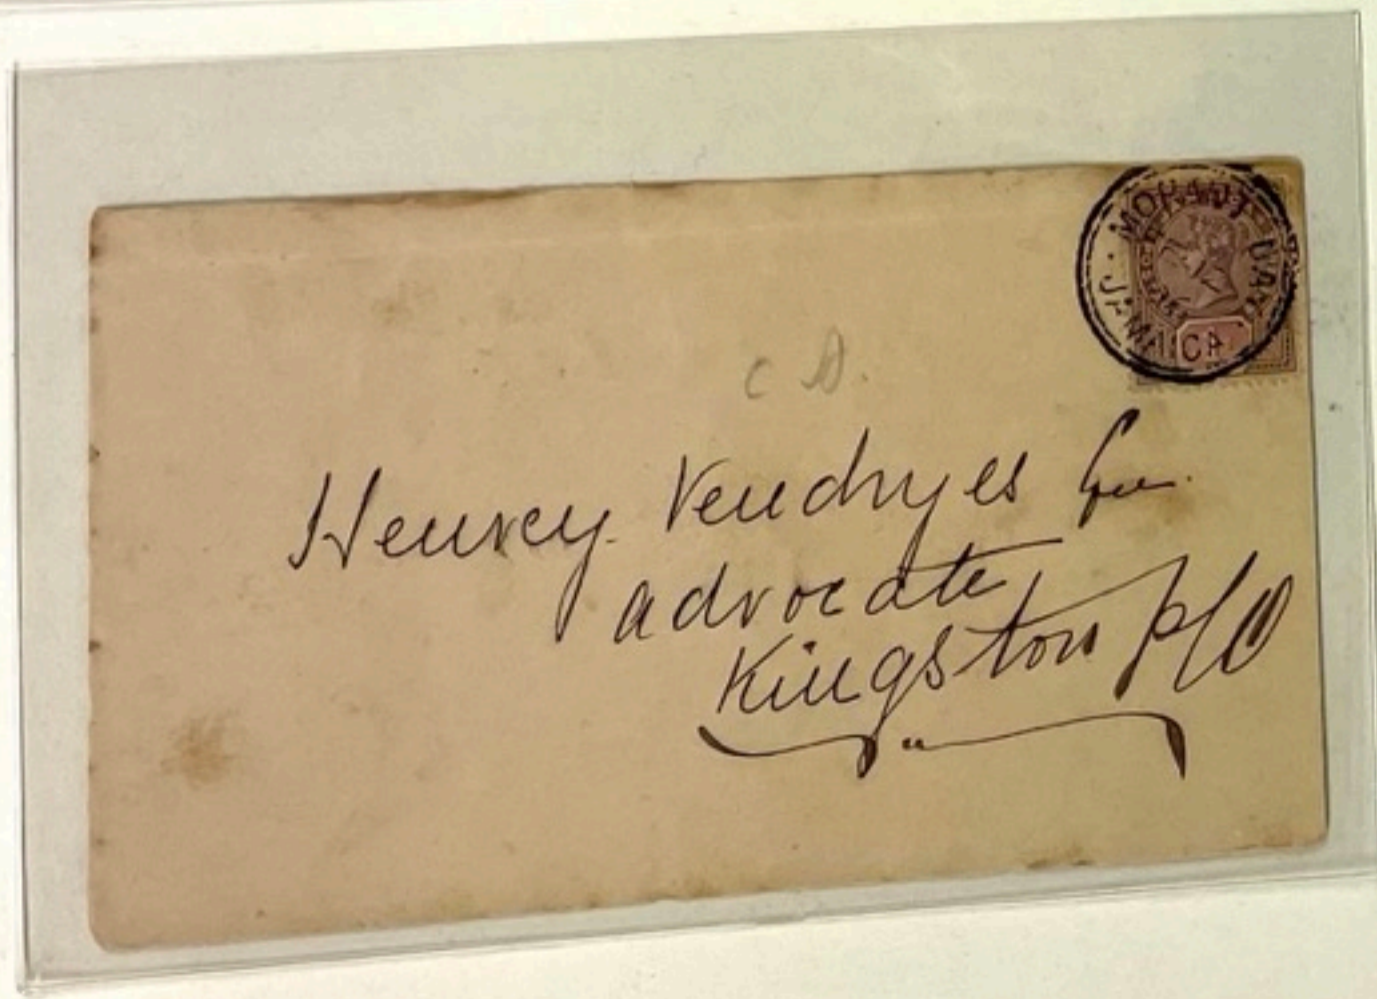 MORANT BAY
JAMAICA
C D.
Henrey Vendryes Esq.
advocate
Kingston P/O